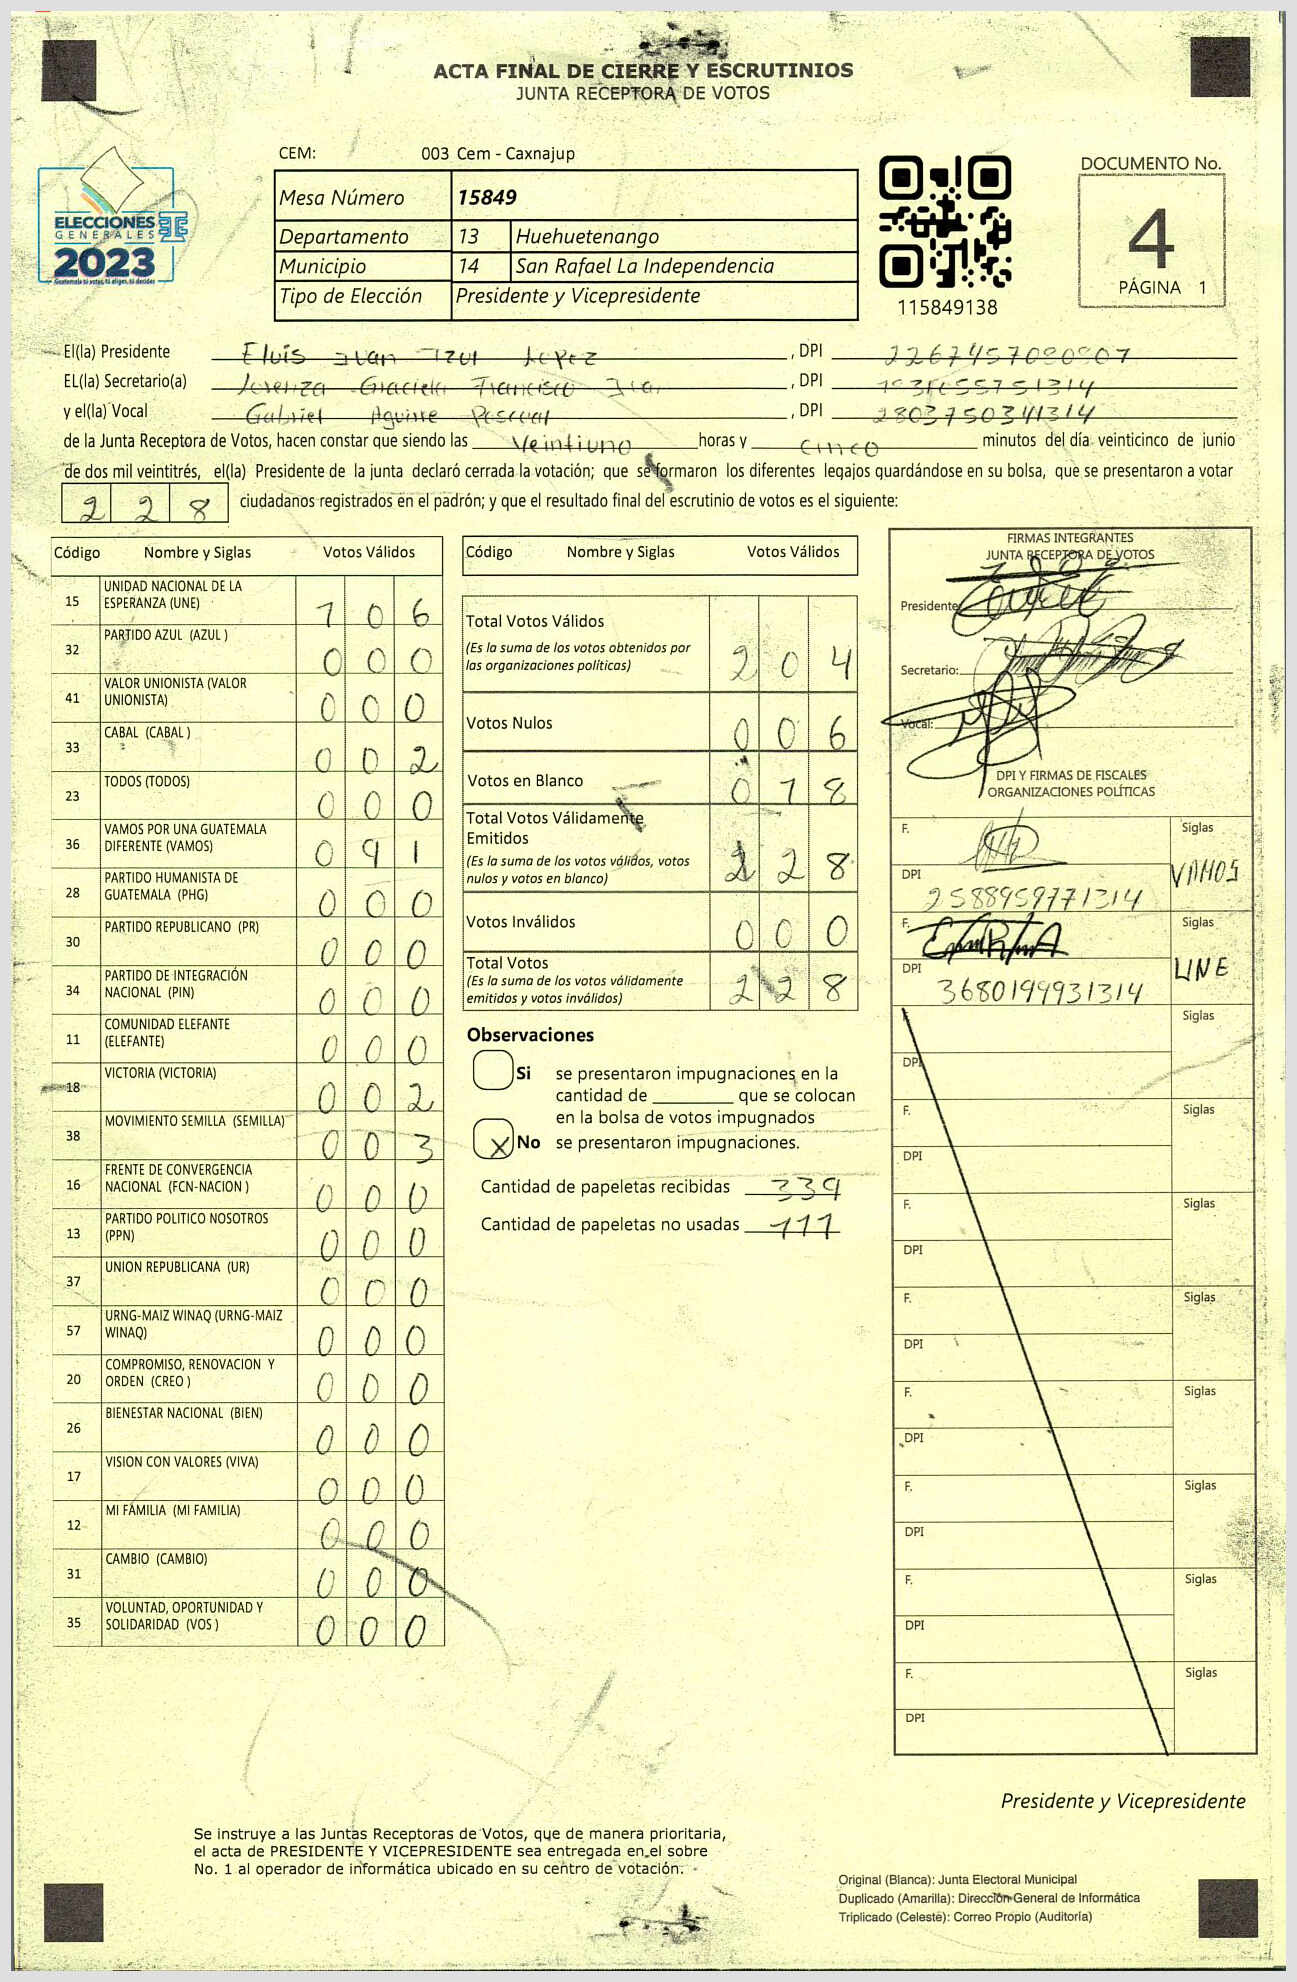 ACTA FINAL DE CIERRE Y ESCRUTINIOS
JUNTA RECEPTORA DE VOTOS
CEM: 003 Cem - Caxnajup
ELECCIONES
GENERALES
2023
Guatemala tú votas, tú eliges, tú decides
Mesa Número 15849
Departamento 13 Huehuetenango
Municipio 14 San Rafael La Independencia
Tipo de Elección Presidente y Vicepresidente
115849138
DOCUMENTO No.
4
PÁGINA 1
El(la) Presidente Eluis Ivan Tzul Lopez , DPI 2267457080807
EL(la) Secretario(a) Lorenza Graciela Francisco , DPI
y el(la) Vocal Gabriel Aguirre Pascual , DPI 2803750341314
de la Junta Receptora de Votos, hacen constar que siendo las Veintiuno horas y cinco minutos del día veinticinco de junio
de dos mil veintitrés, el(la) Presidente de la junta declaró cerrada la votación; que se formaron los diferentes legajos guardándose en su bolsa, que se presentaron a votar
228 ciudadanos registrados en el padrón; y que el resultado final del escrutinio de votos es el siguiente:
Código Nombre y Siglas Votos Válidos
15 UNIDAD NACIONAL DE LA
ESPERANZA (UNE) 106
32 PARTIDO AZUL (AZUL ) 000
41 VALOR UNIONISTA (VALOR
UNIONISTA) 000
33 CABAL (CABAL ) 002
23 TODOS (TODOS) 000
36 VAMOS POR UNA GUATEMALA
DIFERENTE (VAMOS) 091
28 PARTIDO HUMANISTA DE
GUATEMALA (PHG) 000
30 PARTIDO REPUBLICANO (PR) 000
34 PARTIDO DE INTEGRACIÓN
NACIONAL (PIN) 000
11 COMUNIDAD ELEFANTE
(ELEFANTE) 000
18 VICTORIA (VICTORIA) 002
38 MOVIMIENTO SEMILLA (SEMILLA) 003
16 FRENTE DE CONVERGENCIA
NACIONAL (FCN-NACION ) 000
13 PARTIDO POLITICO NOSOTROS
(PPN) 000
37 UNION REPUBLICANA (UR) 000
57 URNG-MAIZ WINAQ (URNG-MAIZ
WINAQ) 000
20 COMPROMISO, RENOVACION Y
ORDEN (CREO ) 000
26 BIENESTAR NACIONAL (BIEN) 000
17 VISION CON VALORES (VIVA) 000
12 MI FAMILIA (MI FAMILIA) 000
31 CAMBIO (CAMBIO) 000
35 VOLUNTAD, OPORTUNIDAD Y
SOLIDARIDAD (VOS ) 000
Código Nombre y Siglas Votos Válidos
Total Votos Válidos
(Es la suma de los votos obtenidos por
las organizaciones políticas) 204
Votos Nulos 006
Votos en Blanco 018
Total Votos Válidamente
Emitidos
(Es la suma de los votos válidos, votos
nulos y votos en blanco) 228
Votos Inválidos 000
Total Votos
(Es la suma de los votos válidamente
emitidos y votos inválidos) 228
Observaciones
Si se presentaron impugnaciones en la
cantidad de ________ que se colocan
en la bolsa de votos impugnados
X No se presentaron impugnaciones.
Cantidad de papeletas recibidas 339
Cantidad de papeletas no usadas 111
FIRMAS INTEGRANTES
JUNTA RECEPTORA DE VOTOS
Presidente:
Secretario:
Vocal:
DPI Y FIRMAS DE FISCALES
ORGANIZACIONES POLÍTICAS
F. Siglas
VAMOS
DPI 2588959771314
F. Siglas
UNE
DPI 3680199931314
F. Siglas
DPI
F. Siglas
DPI
F. Siglas
DPI
F. Siglas
DPI
F. Siglas
DPI
F. Siglas
DPI
F. Siglas
DPI
F. Siglas
DPI
Presidente y Vicepresidente
Se instruye a las Juntas Receptoras de Votos, que de manera prioritaria,
el acta de PRESIDENTE Y VICEPRESIDENTE sea entregada en el sobre
No. 1 al operador de informática ubicado en su centro de votación.
Original (Blanca): Junta Electoral Municipal
Duplicado (Amarilla): Dirección General de Informática
Triplicado (Celeste): Correo Propio (Auditoría)